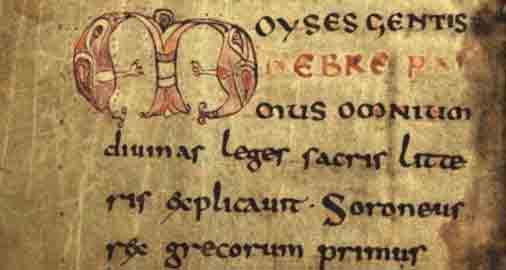 MOYSES GENTIS
hEBRE PRI
MUS OMNIUM
diuinas leges sacris litte
ris explicauit · Soroneus
rex grecorum primus